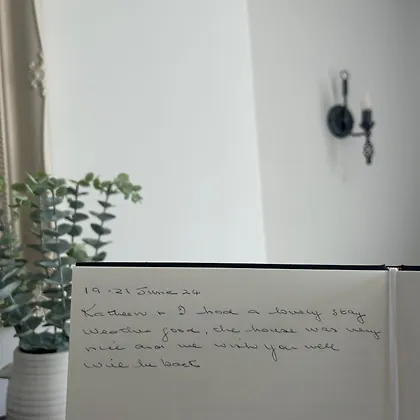 19-21 June 24
Kathleen + I had a lovely stay
Weather good, the house was very
nice and we wish you well
will be back